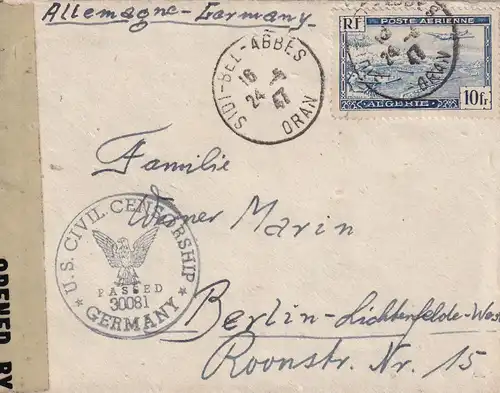 Allemagne - Germany
SIDI-BEL-ABBÈS
16
24 -
47
ORAN
RF POSTE AERIENNE
ALGERIE 10fr
24
47
ORAN
Familie
Werner Marin
U.S. CIVIL CENSORSHIP
PASSED
30081
GERMANY
Berlin-Lichterfelde-West
Roonstr. Nr. 15
OPENED BY